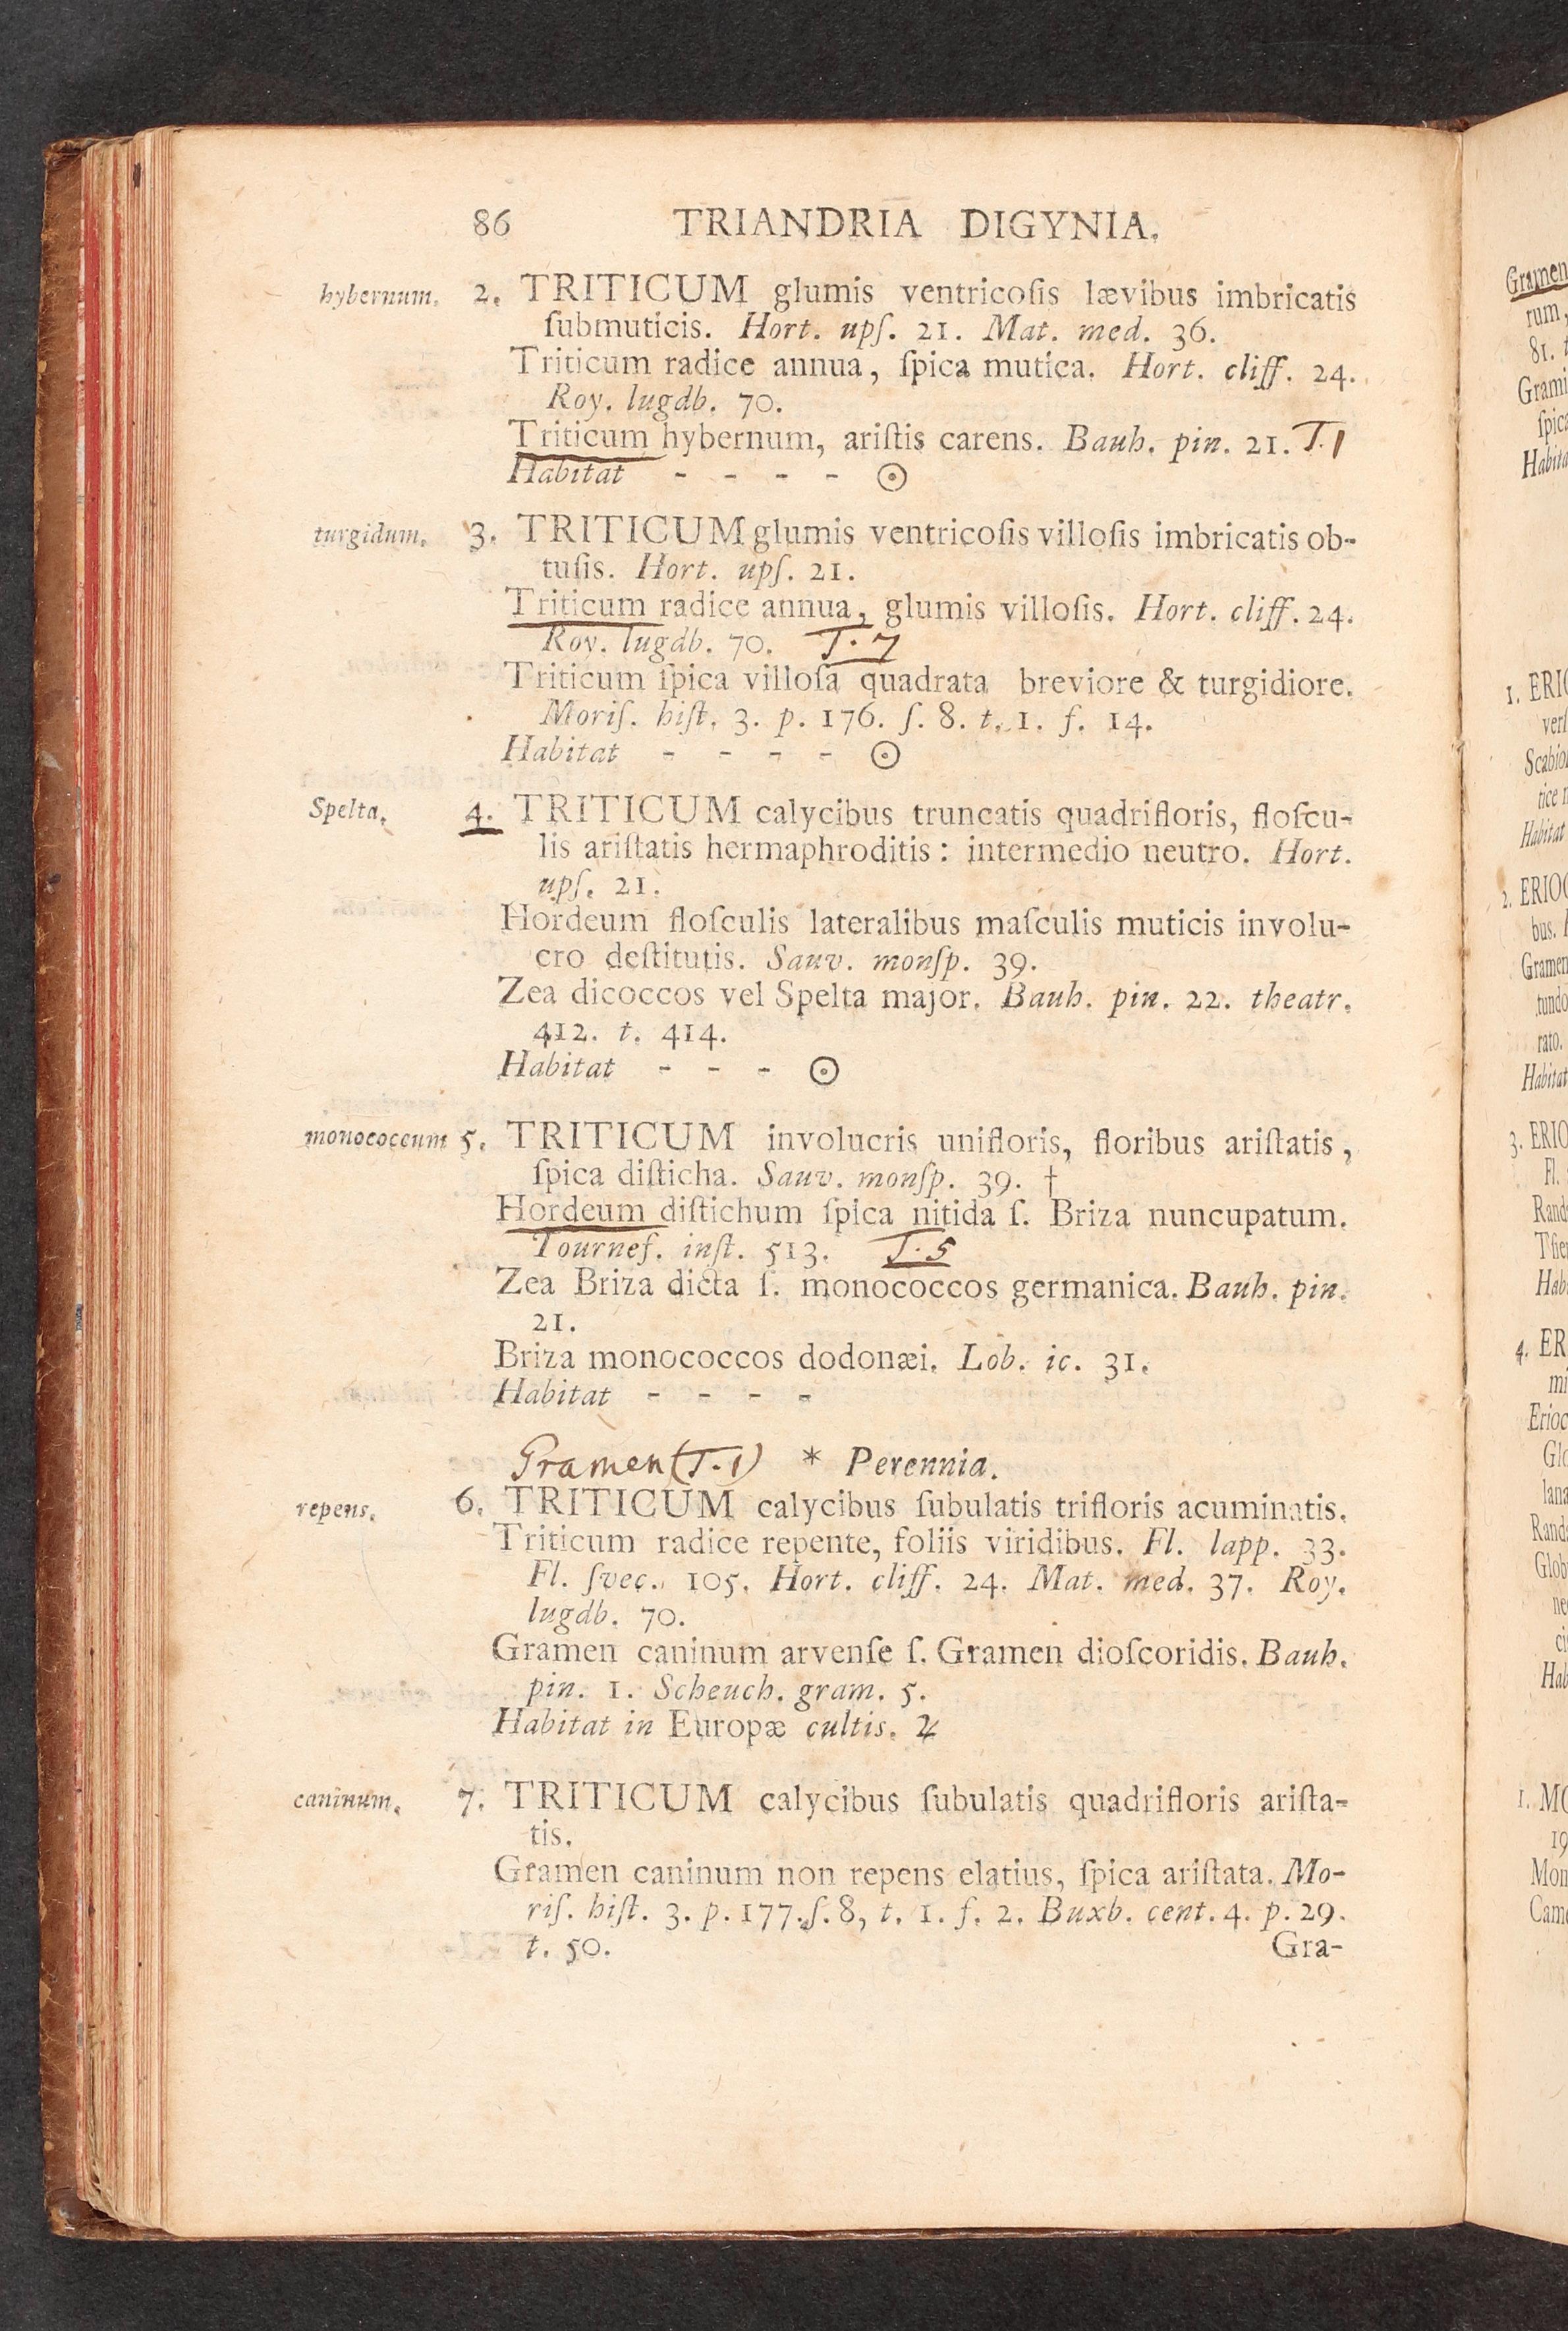 86 TRIANDRIA DIGYNIA.
hybernum. 2. TRITICUM glumis ventricoſis lævibus imbricatis
ſubmuticis. Hort. upſ. 21. Mat. med. 36.
Triticum radice annua, ſpica mutica. Hort. cliff. 24.
Roy. lugdb. 70.
Triticum hybernum, ariſtis carens. Bauh. pin. 21. T.1
Habitat - - - - ☉
turgidum. 3. TRITICUM glumis ventricoſis villoſis imbricatis ob-
tuſis. Hort. upſ. 21.
Triticum radice annua, glumis villoſis. Hort. cliff. 24.
Roy. lugdb. 70. T.7
Triticum ſpica villoſa quadrata breviore & turgidiore.
Moriſ. hiſt. 3. p. 176. ſ. 8. t. 1. f. 14.
Habitat - - - - ☉
Spelta. 4. TRITICUM calycibus truncatis quadrifloris, floſcu-
lis ariſtatis hermaphroditis: intermedio neutro. Hort.
upſ. 21.
Hordeum floſculis lateralibus maſculis muticis involu-
cro deſtitutis. Sauv. monſp. 39.
Zea dicoccos vel Spelta major. Bauh. pin. 22. theatr.
412. t. 414.
Habitat - - - ☉
monococcum 5. TRITICUM involucris unifloris, floribus ariſtatis,
ſpica diſticha. Sauv. monſp. 39. †
Hordeum diſtichum ſpica nitida ſ. Briza nuncupatum.
Tournef. inſt. 513. T.5
Zea Briza dicta ſ. monococcos germanica. Bauh. pin.
21.
Briza monococcos dodonæi. Lob. ic. 31.
Habitat - - - -
Gramen (T.1) * Perennia.
repens. 6. TRITICUM calycibus ſubulatis trifloris acuminatis.
Triticum radice repente, foliis viridibus. Fl. lapp. 33.
Fl. ſvec. 105. Hort. cliff. 24. Mat. med. 37. Roy.
lugdb. 70.
Gramen caninum arvenſe ſ. Gramen dioſcoridis. Bauh.
pin. 1. Scheuch. gram. 5.
Habitat in Europæ cultis. ♃
caninum. 7. TRITICUM calycibus ſubulatis quadrifloris ariſta-
tis.
Gramen caninum non repens elatius, ſpica ariſtata. Mo-
riſ. hiſt. 3. p. 177. ſ. 8, t. 1. f. 2. Buxb. cent. 4. p. 29.
t. 50. Gra-
Gramen
rum,
81.
ſpica
1. ERIO
Habitat
2. ERIOC
bus.
Gramen
rato.
Habitat
3. ERIO
Fl.
4. ER
1. MO
19